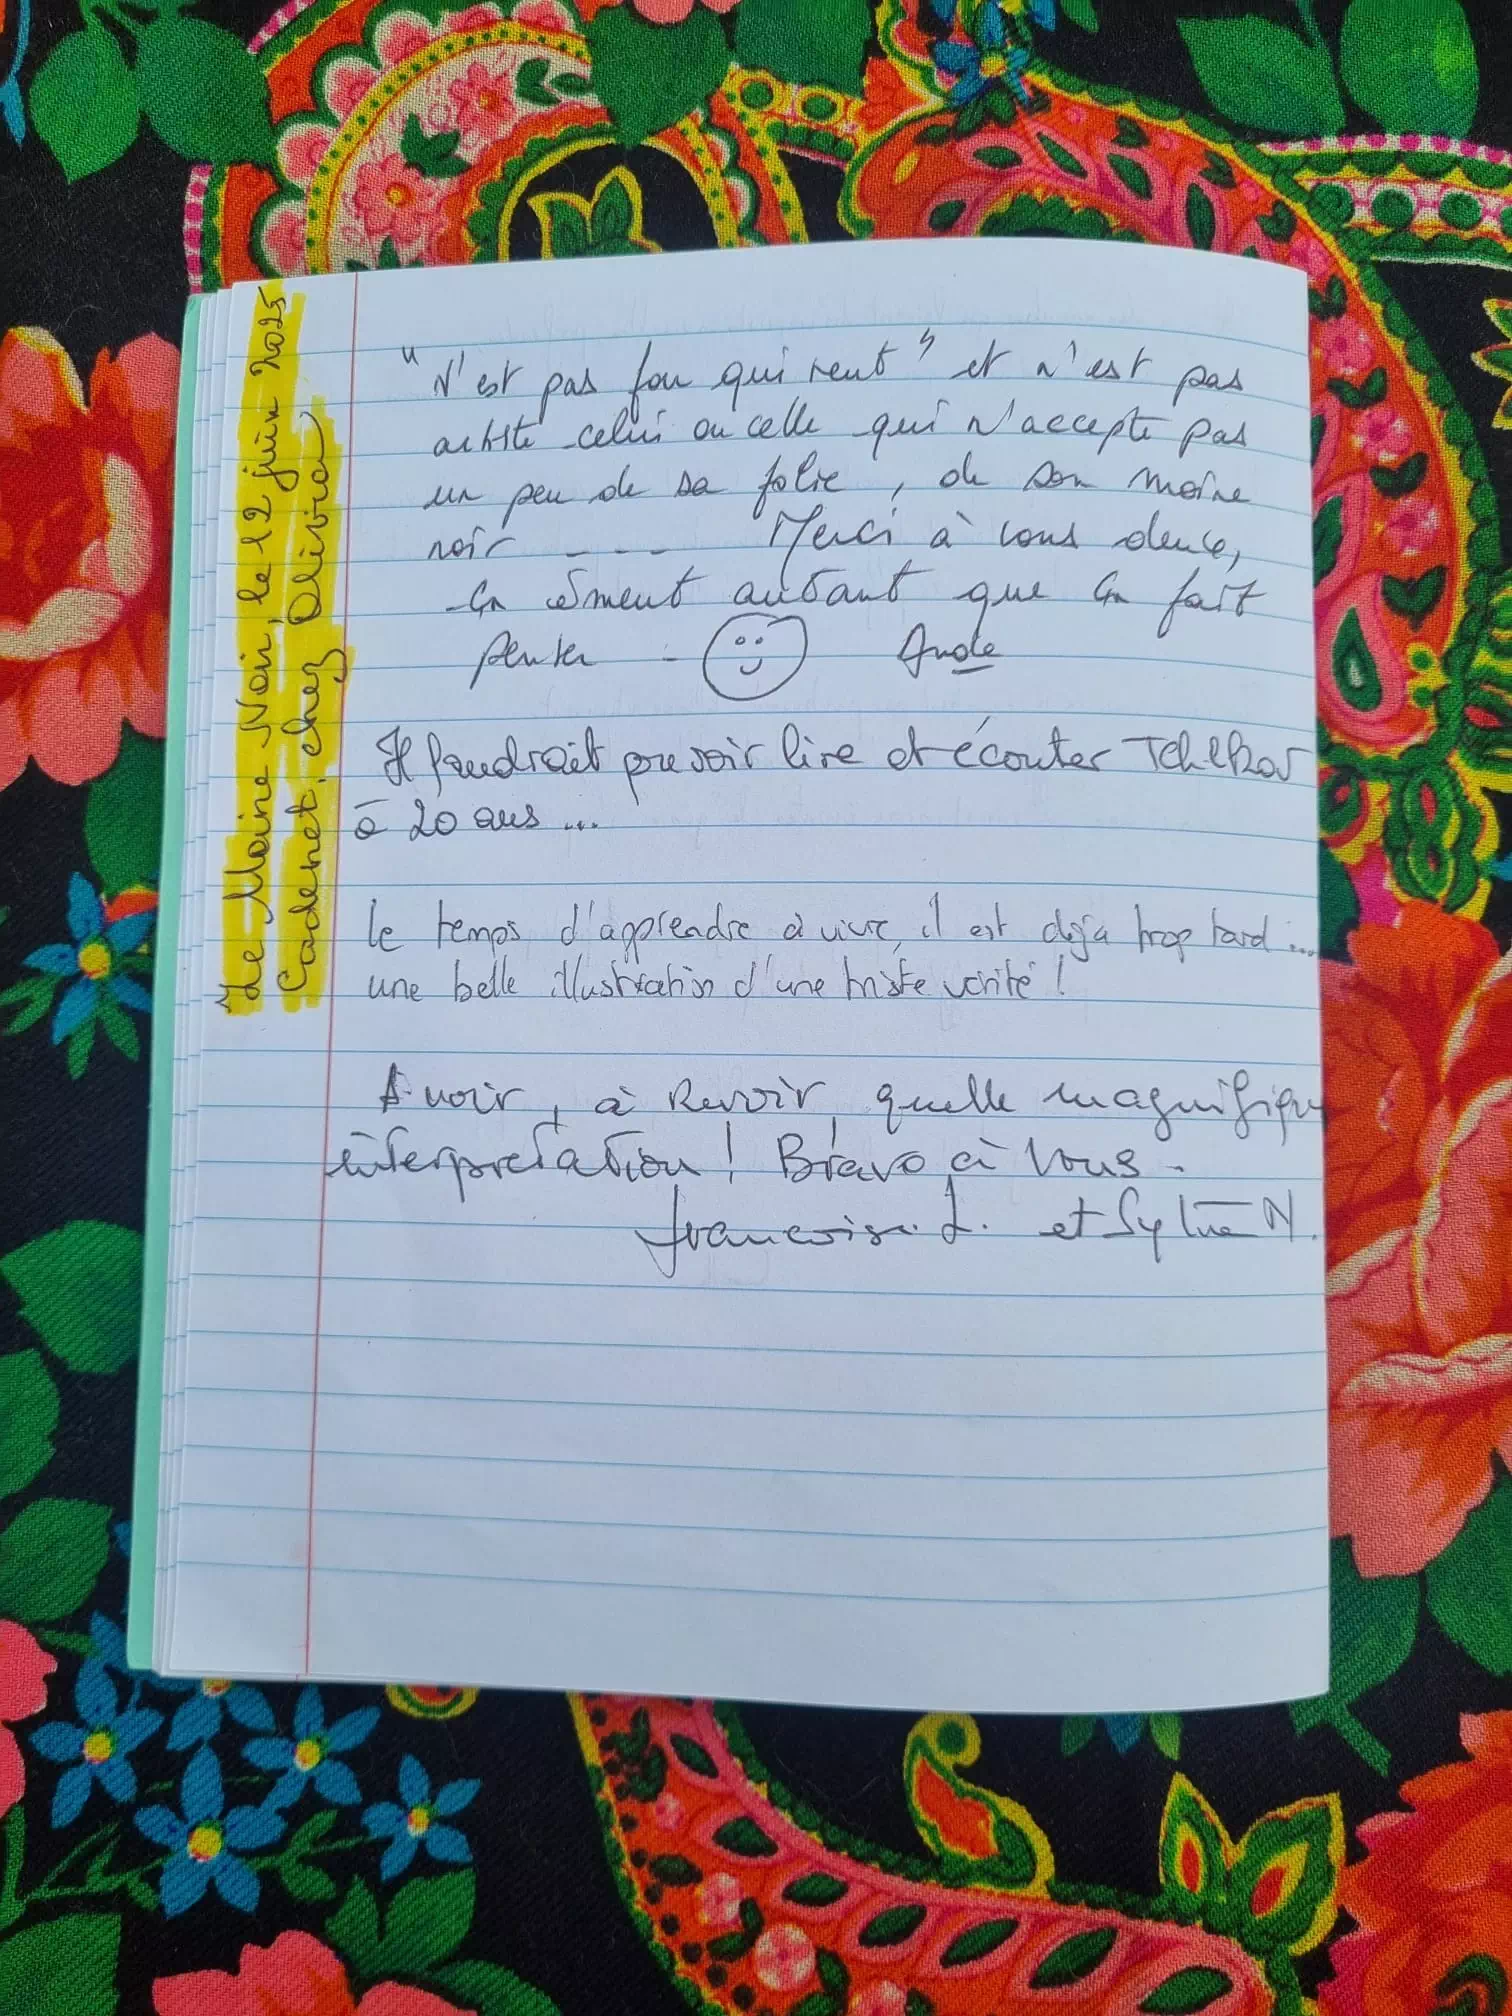 Le Moine Noir, le 12 juin 2025
Cadenet, chez Olivia
"N'est pas fou qui veut" et n'est pas
artiste celui ou celle qui n'accepte pas
un peu de sa folie, de son moine
noir ---- Merci à vous deux,
ça émeut autant que ça fait
penser - Aude
Il faudrait pouvoir lire et écouter
à 20 ans...
le temps d'apprendre à vivre, il est déjà trop tard...
une belle illustration d'une triste vérité !
A voir, à Revoir, quelle magnifique
interprétation ! Bravo à Vous.
Françoise. L. et Sylvie N.